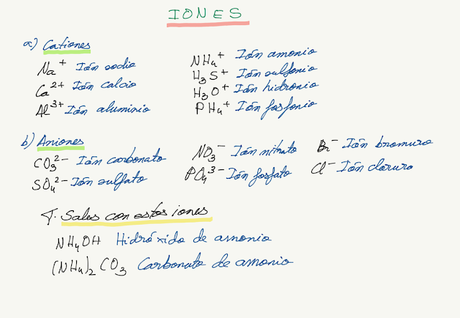 IONES
a) Cationes
Na⁺ Ión sodio
Ca²⁺ Ión calcio
Al³⁺ Ión aluminio
NH₄⁺ Ión amonio
H₃S⁺ Ión sulfonio
H₃O⁺ Ión hidronio
PH₄⁺ Ión fosfonio
b) Aniones
CO₃²⁻ Ión carbonato
SO₄²⁻ Ión sulfato
NO₃⁻ Ión nitrato
PO₄³⁻ Ión fosfato
Br⁻ Ión bromuro
Cl⁻ Ión cloruro
Sales con estos iones
NH₄OH Hidróxido de amonio
(NH₄)₂ CO₃ Carbonato de amonio